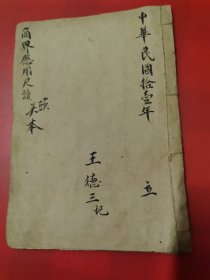 中華民國拾壹年
立
王德三記
商界應用尺牘
頭本